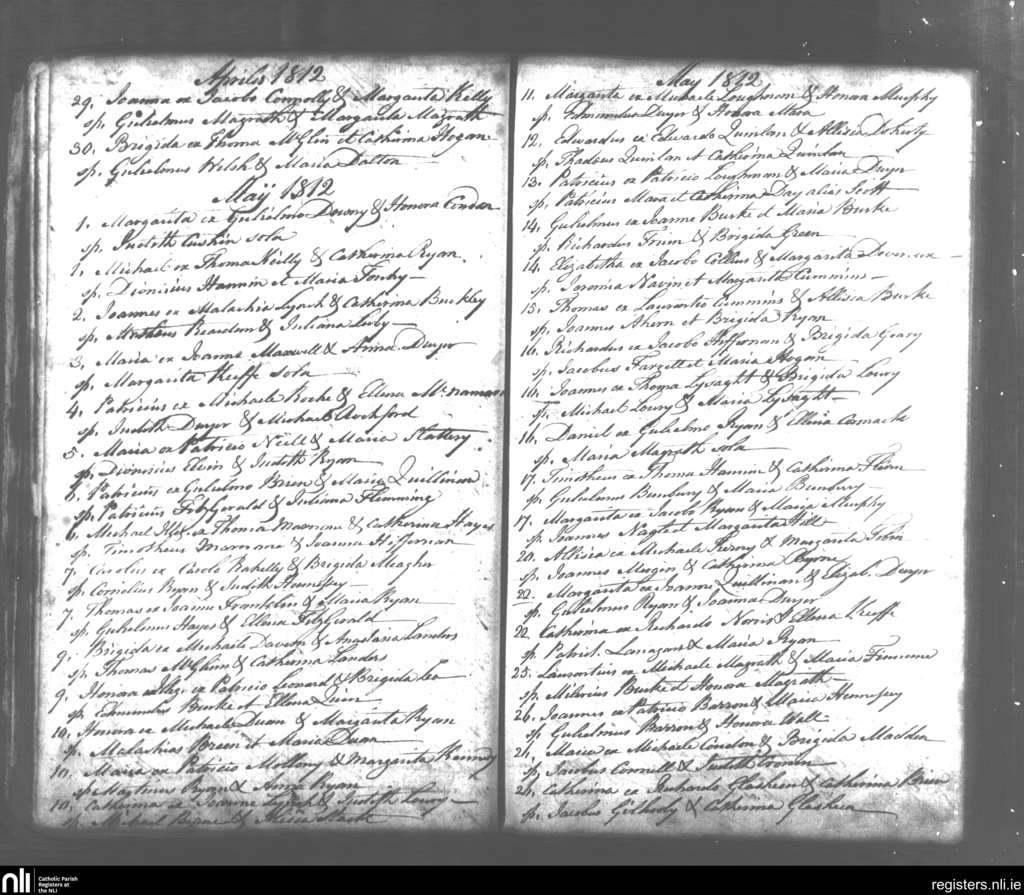 Aprilis 1812
29. Joanna ex Jacobo Connolly & Margarita Kelly
sp. Gulielmus Magrath & Margarita Magrath
30. Brigida ex Thoma McGlin et Catharina Hogan
sp. Gulielmus Welsh & Maria Dalton
Maÿ 1812
1. Margarita ex Gulielmo Downy & Honora
sp. Judith Cushin sola
1. Michael ex Thoma Reilly & Catherina Ryan
sp. Dionisius Hannin et Maria
2. Joannes ex Malachia Lynch & Catherina Buckley
sp. Mattheus Reardon & Juliana
3. Maria ex Joanne Maxwell & Anna Dwyer
sp. Margarita Keiffe sola
4. Patricius ex Michaele Roche & Ellena McNamara
sp. Judith Dwyer & Michael Rockford
5. Maria ex Patricio Neill & Maria Slattery
sp. Dionisius & Judith Ryan
6. Patricius ex Gulielmo Brien & Maria Quillinan
sp. Patricius FitzGerald & Juliana Flemming
6. Michael ex Thoma & Catherina Hayes
sp. Timotheus & Joanna Hiffernan
7. Carolus ex Carolo & Brigida Meagher
sp. Cornelius Ryan & Judith Hennessy
7. Thomas ex Joanne Franklin & Maria Ryan
sp. Gulielmus Hayes & Ellena FitzGerald
9. Brigida ex Michaele & Anastasia Landers
sp. Thomas McGlinn & Catherina Landers
9. Honora ex Patricio Leonard & Brigida Lee
sp. Edmundus Burke et Ellena Quin
10. Honora ex Michaele Duan & Margarita Ryan
sp. Malachias Breen et Maria Duan
10. Maria ex Patricio Mollony & Margarita Kennedy
sp. Ryan & Anna Ryan
10. Catherina ex Joanne & Judith Lowry
sp. Michael &
May 1812
11. Margarita ex Michaele Loughnan & Honora Murphy
sp. Edmundus Dwyer & Honora Mara
12. Edwardus ex Edwardo Quinlan & Allisia Doherty
sp. Thadeus Quinlan et Catherina Quinlan
13. Patricius ex Patricio Loughman & Maria Dwyer
sp. Patricius Mara et Catherina Day alias Scott
14. Gulielmus ex Joanne Burke et Maria Burke
sp. Richardus & Brigida Green
14. Elizabetha ex Jacobo & Margarita
sp. Jeremia Navin et Margarita Cummins
15. Thomas ex Laurentio Cummins & Allisia Burke
sp. Joannes Ahern et Brigida Ryan
16. Richardus ex Jacobo Hiffernan & Brigida Geary
sp. Jacobus et Maria Hogan
16. Joannes ex Thoma Lysaght & Brigida Lowry
sp. Michael Lowry & Maria Lysaght
16. Daniel ex Gulielmo Ryan & Ellena
sp. Maria Magrath sola
17. Timotheus ex Thoma Hannin & Catherina
sp. Gulielmus Bunbury & Maria Bunbury
17. Margarita ex Jacobo Ryan & Maria Murphy
sp. Joannes Nagle et Margarita Hill
20. ex Michaele & Margarita Tobin
sp. Joannes & Catherina Byrne
22. Margarita ex Joanne Quillinan & Elizab. Dwyer
sp. Gulielmus Ryan & Joanna Dwyer
22. Catherina ex Richardo Norris & Ellena Keiffe
sp. Patrici. & Maria Ryan
25. Laurentius ex Michaele Magrath & Maria
sp. Burke et Honora Magrath
26. Joannes ex Patricio Barron & Maria Hennesey
sp. Gulielmus Barron & Honora Wall
24. Maria ex Michaele Condon & Brigida Madden
sp. Jacobus & Judith Cronin
24. Catherina ex Richardo Glasheen & Catherina Brien
sp. Jacobus & Catherina Glasheen
nli
Catholic Parish
Registers at
the NLI
registers.nli.ie